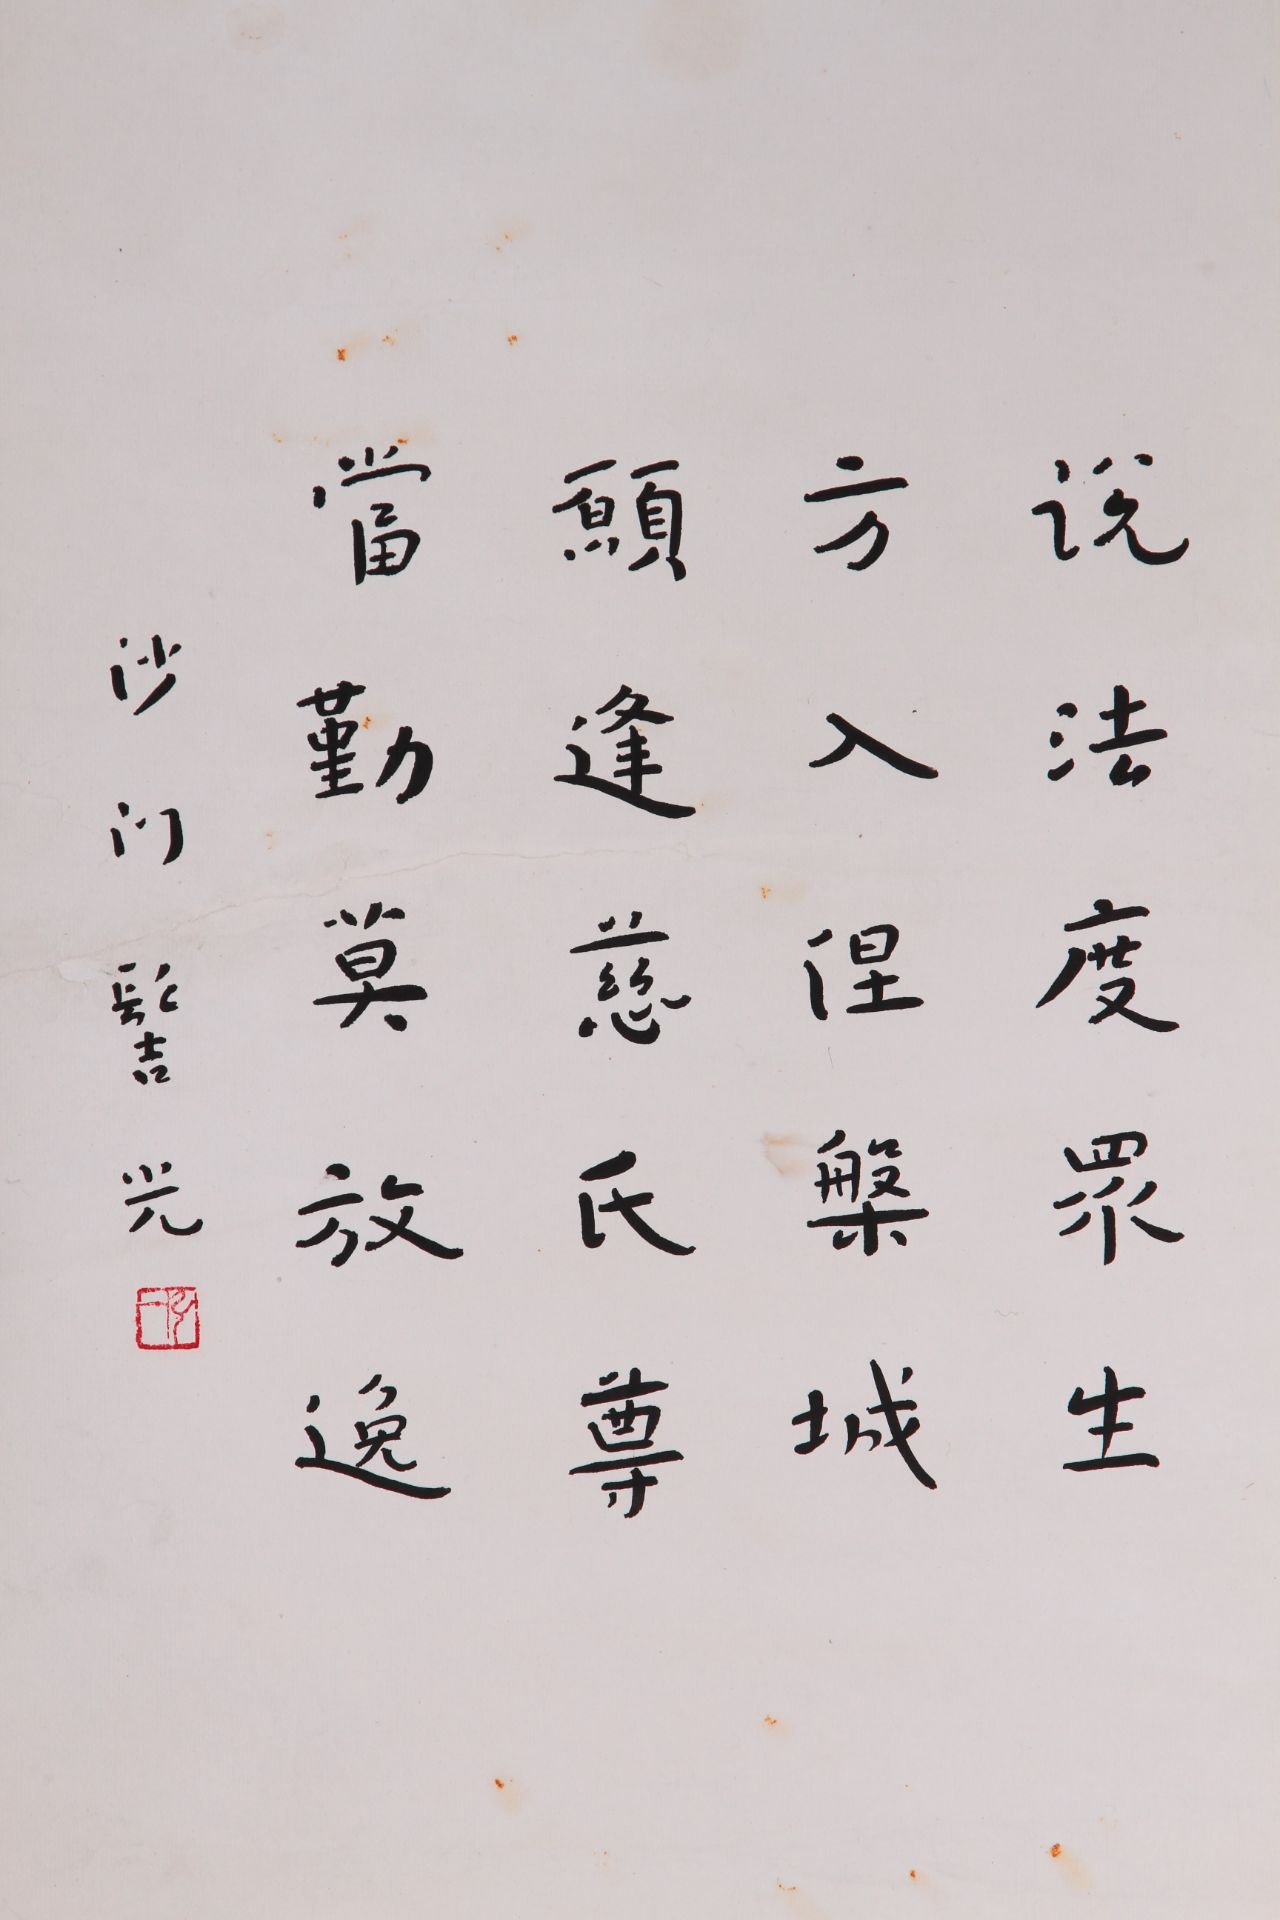 說法度眾生
方入涅槃城
願逢慈氏尊
當勤莫放逸
沙门髻光
弘一